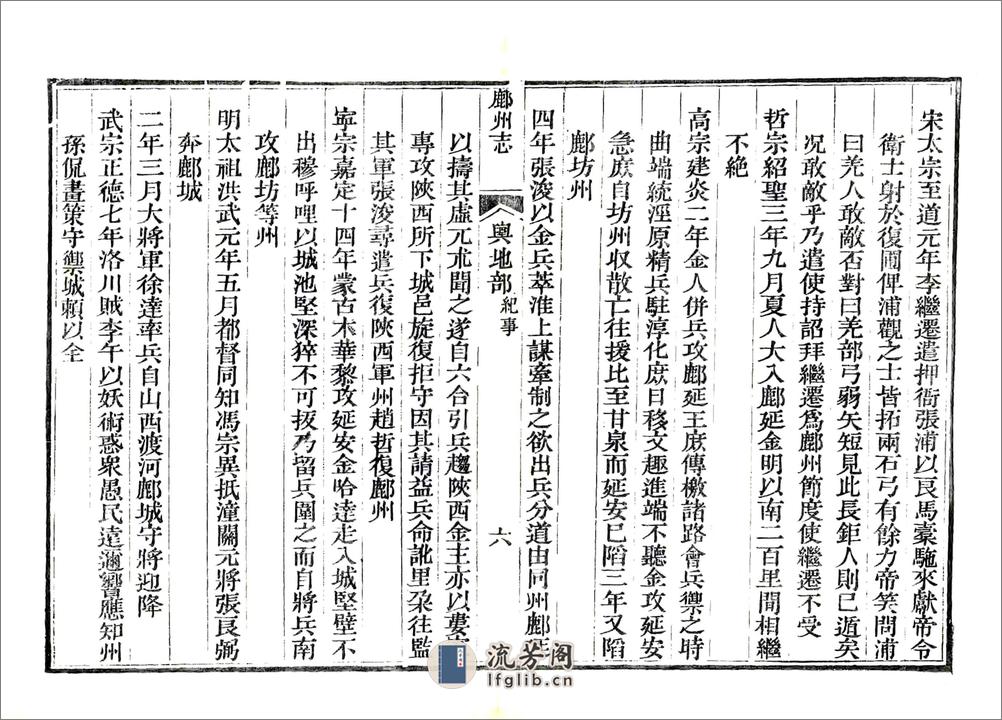 宋太宗至道元年李繼遷遣押衙張浦以良馬橐駞來獻帝令
衛士射於復圃俾浦觀之士皆拓兩石弓有餘力帝笑問浦
曰羌人敢敵否對曰羌部弓弱矢短見此長鉅人則已遁矣
况敢敵乎乃遣使持詔拜繼遷爲鄜州節度使繼遷不受
哲宗紹聖三年九月夏人大入鄜延金明以南二百里間相繼
不絶
高宗建炎二年金人併兵攻鄜延王庶傳檄諸路會兵禦之時
曲端統涇原精兵駐淳化庶日移文趣進端不聽金攻延安
急庶自坊州收散亡往援比至甘泉而延安已陷三年又陷
鄜坊州
鄜州志
輿地部 紀事
六
四年張浚以金兵萃淮上謀牽制之欲出兵分道由同州鄜延
以擣其虛兀朮聞之遂自六合引兵趨陝西金主亦以婁
專攻陝西所下城邑旋復拒守因其請益兵命訛里朶往監
其軍張浚尋遣兵復陝西軍州趙哲復鄜州
寧宗嘉定十四年蒙古木華黎攻延安金哈達走入城堅壁不
出穆呼哩以城池堅深猝不可拔乃留兵圍之而自將兵南
攻鄜坊等州
明太祖洪武元年五月都督同知馮宗異抵潼關元將張良弼
奔鄜城
二年三月大將軍徐達率兵自山西渡河鄜城守將迎降
武宗正德七年洛川賊李午以妖術惑衆愚民遠邇響應知州
孫侃畫策守禦城賴以全
流芳阁
lfglib.cn